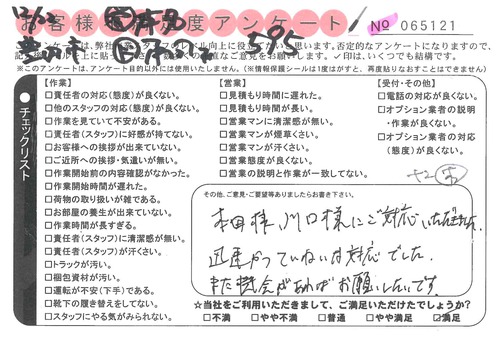 お客様満足度アンケート
№ 065121
12/12
595
アンケートは、弊社
※このアンケートは、アンケート目的以外には使用いたしません。(情報保護シールは1度はがすと、再度貼りなおすことはできません)
チェックリスト
【作業】
□責任者の対応(態度)が良くない。
□他のスタッフの対応(態度)が良くない。
□作業を見ていて不安がある。
□責任者(スタッフ)に好感が持てない。
□お客様への挨拶が出来ていない。
□ご近所への挨拶・気遣いが無い。
□作業開始前の内容確認がなかった。
□作業開始時間が遅れた。
□荷物の取り扱いが雑である。
□お部屋の養生が出来ていない。
□作業時間が長すぎる。
□責任者(スタッフ)に清潔感が無い。
□責任者(スタッフ)が汗くさい。
□トラックが汚い。
□梱包資材が汚い。
□運転が不安(下手)である。
□靴下の履き替えをしてない。
□スタッフにやる気がみられない。
【営業】
□見積もり時間に遅れた。
□見積もり時間が長い。
□営業マンに清潔感が無い。
□営業マンが煙草くさい。
□営業マンが汗くさい。
□営業態度が良くない。
□営業の説明と作業が一致してない。
【受付・その他】
□電話の対応が良くない。
□オプション業者の説明・作業が良くない。
□オプション業者の対応(態度)が良くない。
その他、ご意見・ご要望等ありましたらお書き下さい。
本田様、川口様にご対応いただきました。
迅速かつていねいな対応でした。
また機会があればお願いしたいです。
☆当社をご利用いただきまして、ご満足いただけたでしょうか?
□不満 □やや不満 □普通 □やや満足 ☑満足